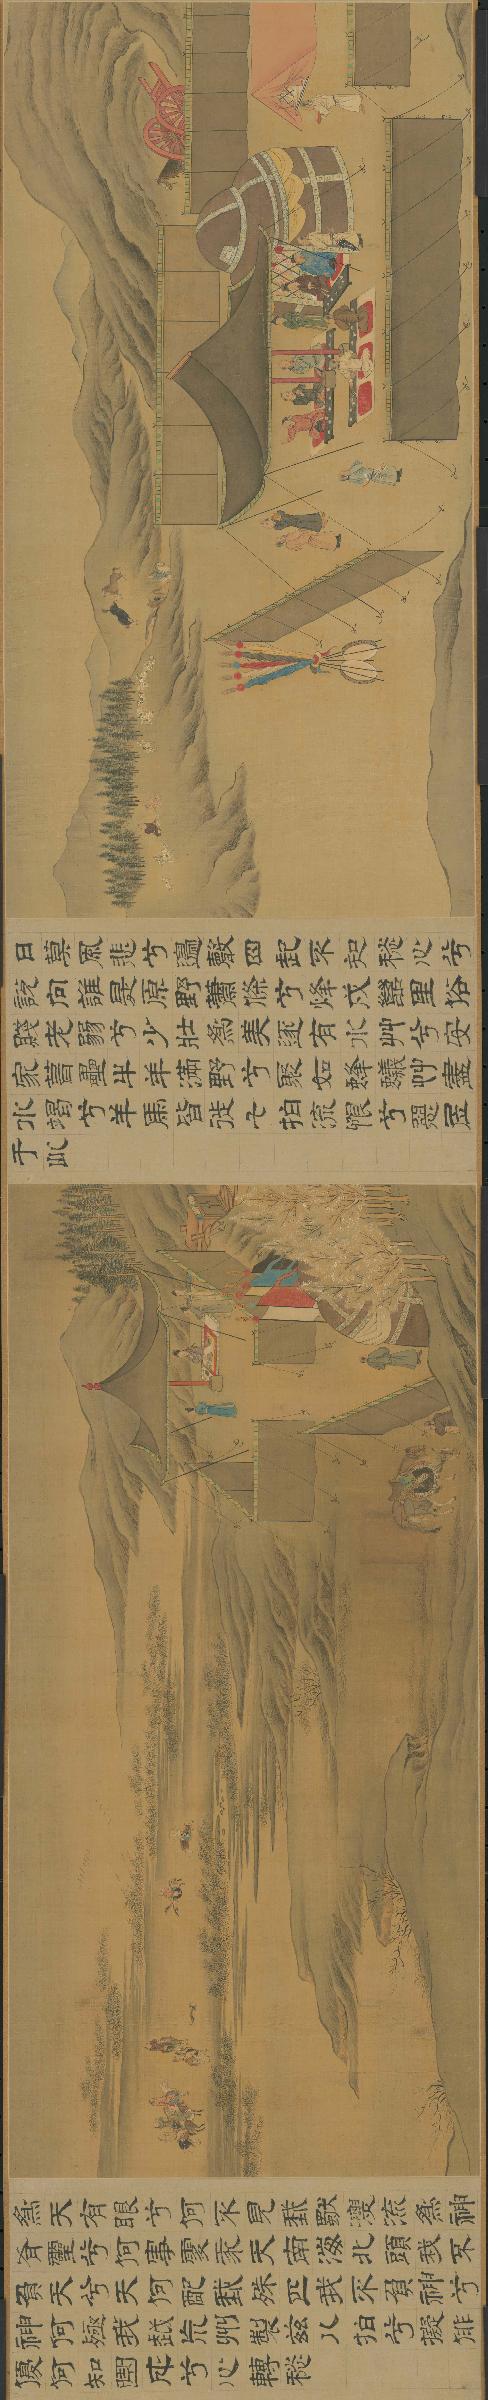 日莫風悲兮邊聲四起不知愁心兮
說向誰是原野蕭條兮烽戍巒里俗
賤老弱兮少壯為美逐有水艸兮安
家葺壘牛羊滿野兮聚如蜂蟻艸盡
水竭兮羊馬皆徙七拍流恨兮惡居
于此
為天有眼兮何不見我獨漂流為神
有靈兮何事處我天南海北頭我不
負天兮天何配我殊匹我不負神兮
神何殛我越荒州製茲八拍兮擬俳
優何知曲成兮心轉愁